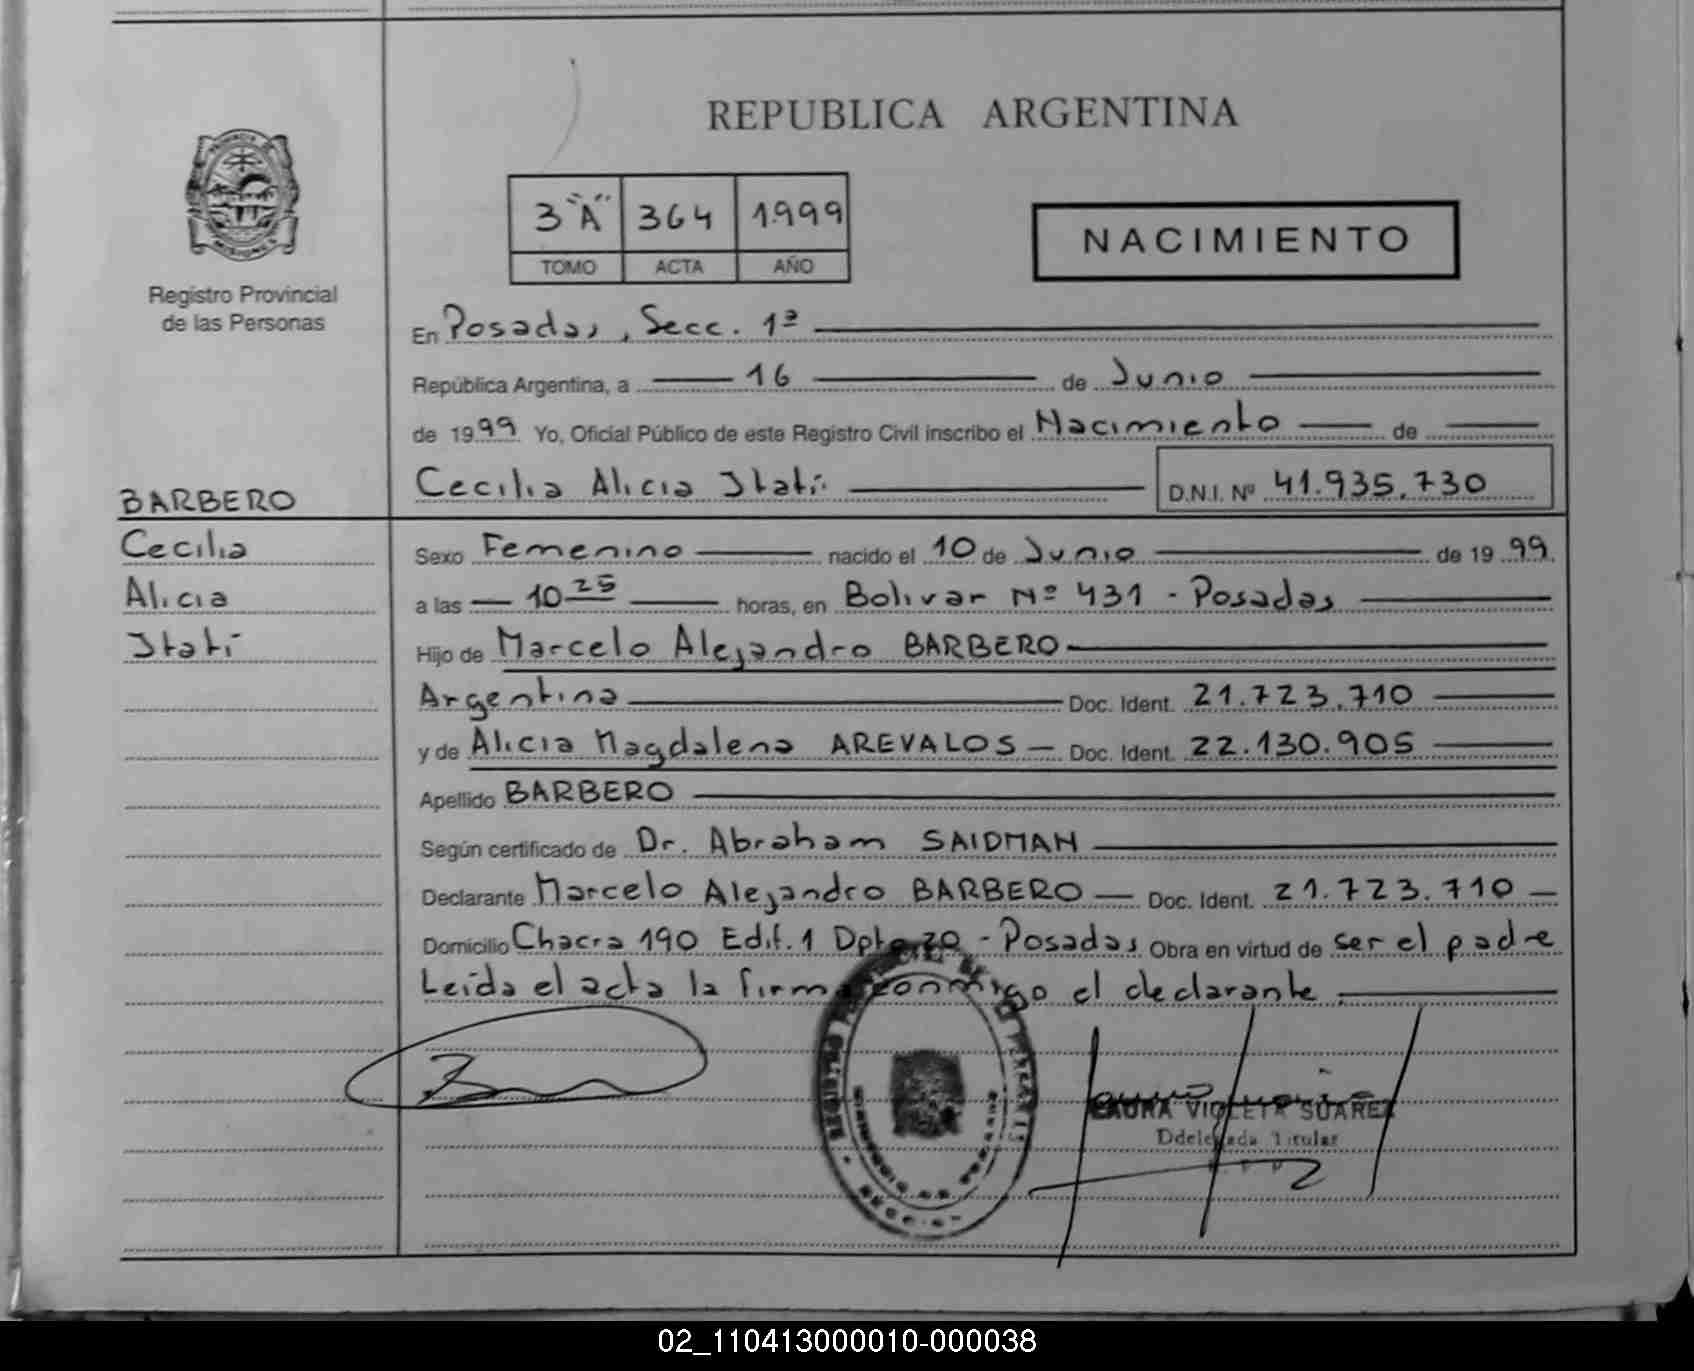 REPUBLICA ARGENTINA
PROVINCIA
MISIONES
Registro Provincial
de las Personas
3 "A" 364 1999
TOMO ACTA AÑO
NACIMIENTO
En Posadas, Secc. 1ª
República Argentina, a 16 de Junio
de 1999 Yo, Oficial Público de este Registro Civil inscribo el Nacimiento de
Cecilia Alicia Itatí D.N.I. Nº 41.935.730
BARBERO
Cecilia
Alicia
Itatí
Sexo Femenino nacido el 10 de Junio de 1999
a las 10 25 horas, en Bolivar Nº 431 - Posadas
Hijo de Marcelo Alejandro BARBERO
Argentina Doc. Ident. 21.723.710
y de Alicia Magdalena AREVALOS Doc. Ident. 22.130.905
Apellido BARBERO
Según certificado de Dr. Abraham SAIDMAN
Declarante Marcelo Alejandro BARBERO Doc. Ident. 21.723.710
Domicilio Chacra 190 Edif. 1 Dpto 20 - Posadas Obra en virtud de ser el padre
Leída el acta la firma conmigo el declarante.
LAURA VIOLETA SUAREZ
Ddelegada Titular
02_110413000010-000038